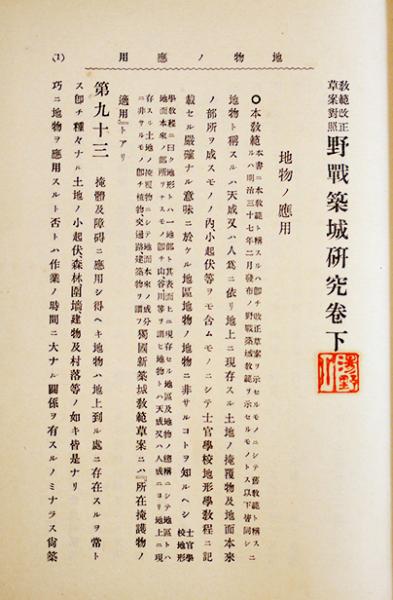 地物ノ應用 (1)
教範改正草案對照 野戰築城研究卷下
地物ノ應用
○本敎範 本書ニ本敎範ト稱スルハ卽チ改正草案ヲ示セルモノニシテ舊敎範ト稱スルハ明治三十七年二月發布ノ野戰築城敎範ヲ示セルモノトス以下皆同シ ニ
地物ト稱スルハ天成又ハ人爲ニ依リ地上ニ現存スル土地ノ掩覆物及地面本來
ノ部所ヲ成スモノノ內、小起伏等ヲモ含ムモノニシテ士官學校地形學敎程ニ記
載セル嚴確ナル意味ニ於ケル地區地物ノ地物ニ非サルコトヲ知ルヘシ 士官學校地形
學敎程ニ曰ク地形トハ一地部ト其表面上ニ現存セル地區及地物ノ總稱ニシテ地區トハ
地面本來ノ部所ヲナスモノ卽チ山谷川等ヲ謂ヒ地物トハ天成又ハ人成ニヨリ地上ニ現
存スル土地ノ掩覆物ニシテ地面本來ノ成分
ニ非サルモノ卽チ植物、交通路、建築物ヲ謂フ 獨國新築城敎範草案ニハ『所在掩護物ノ
適用』トアリ
第九十三 掩體及障碍ニ應用シ得ヘキ地物ハ地上到ル處ニ存在スルヲ常ト
ス卽チ種々ナル土地ノ小起伏森林圍墻建物及村落等ノ如キ皆是ナリ
巧ニ地物ヲ應用スルト否トハ作業ノ時間ニ大ナル關係ヲ有スルノミナラス尙築